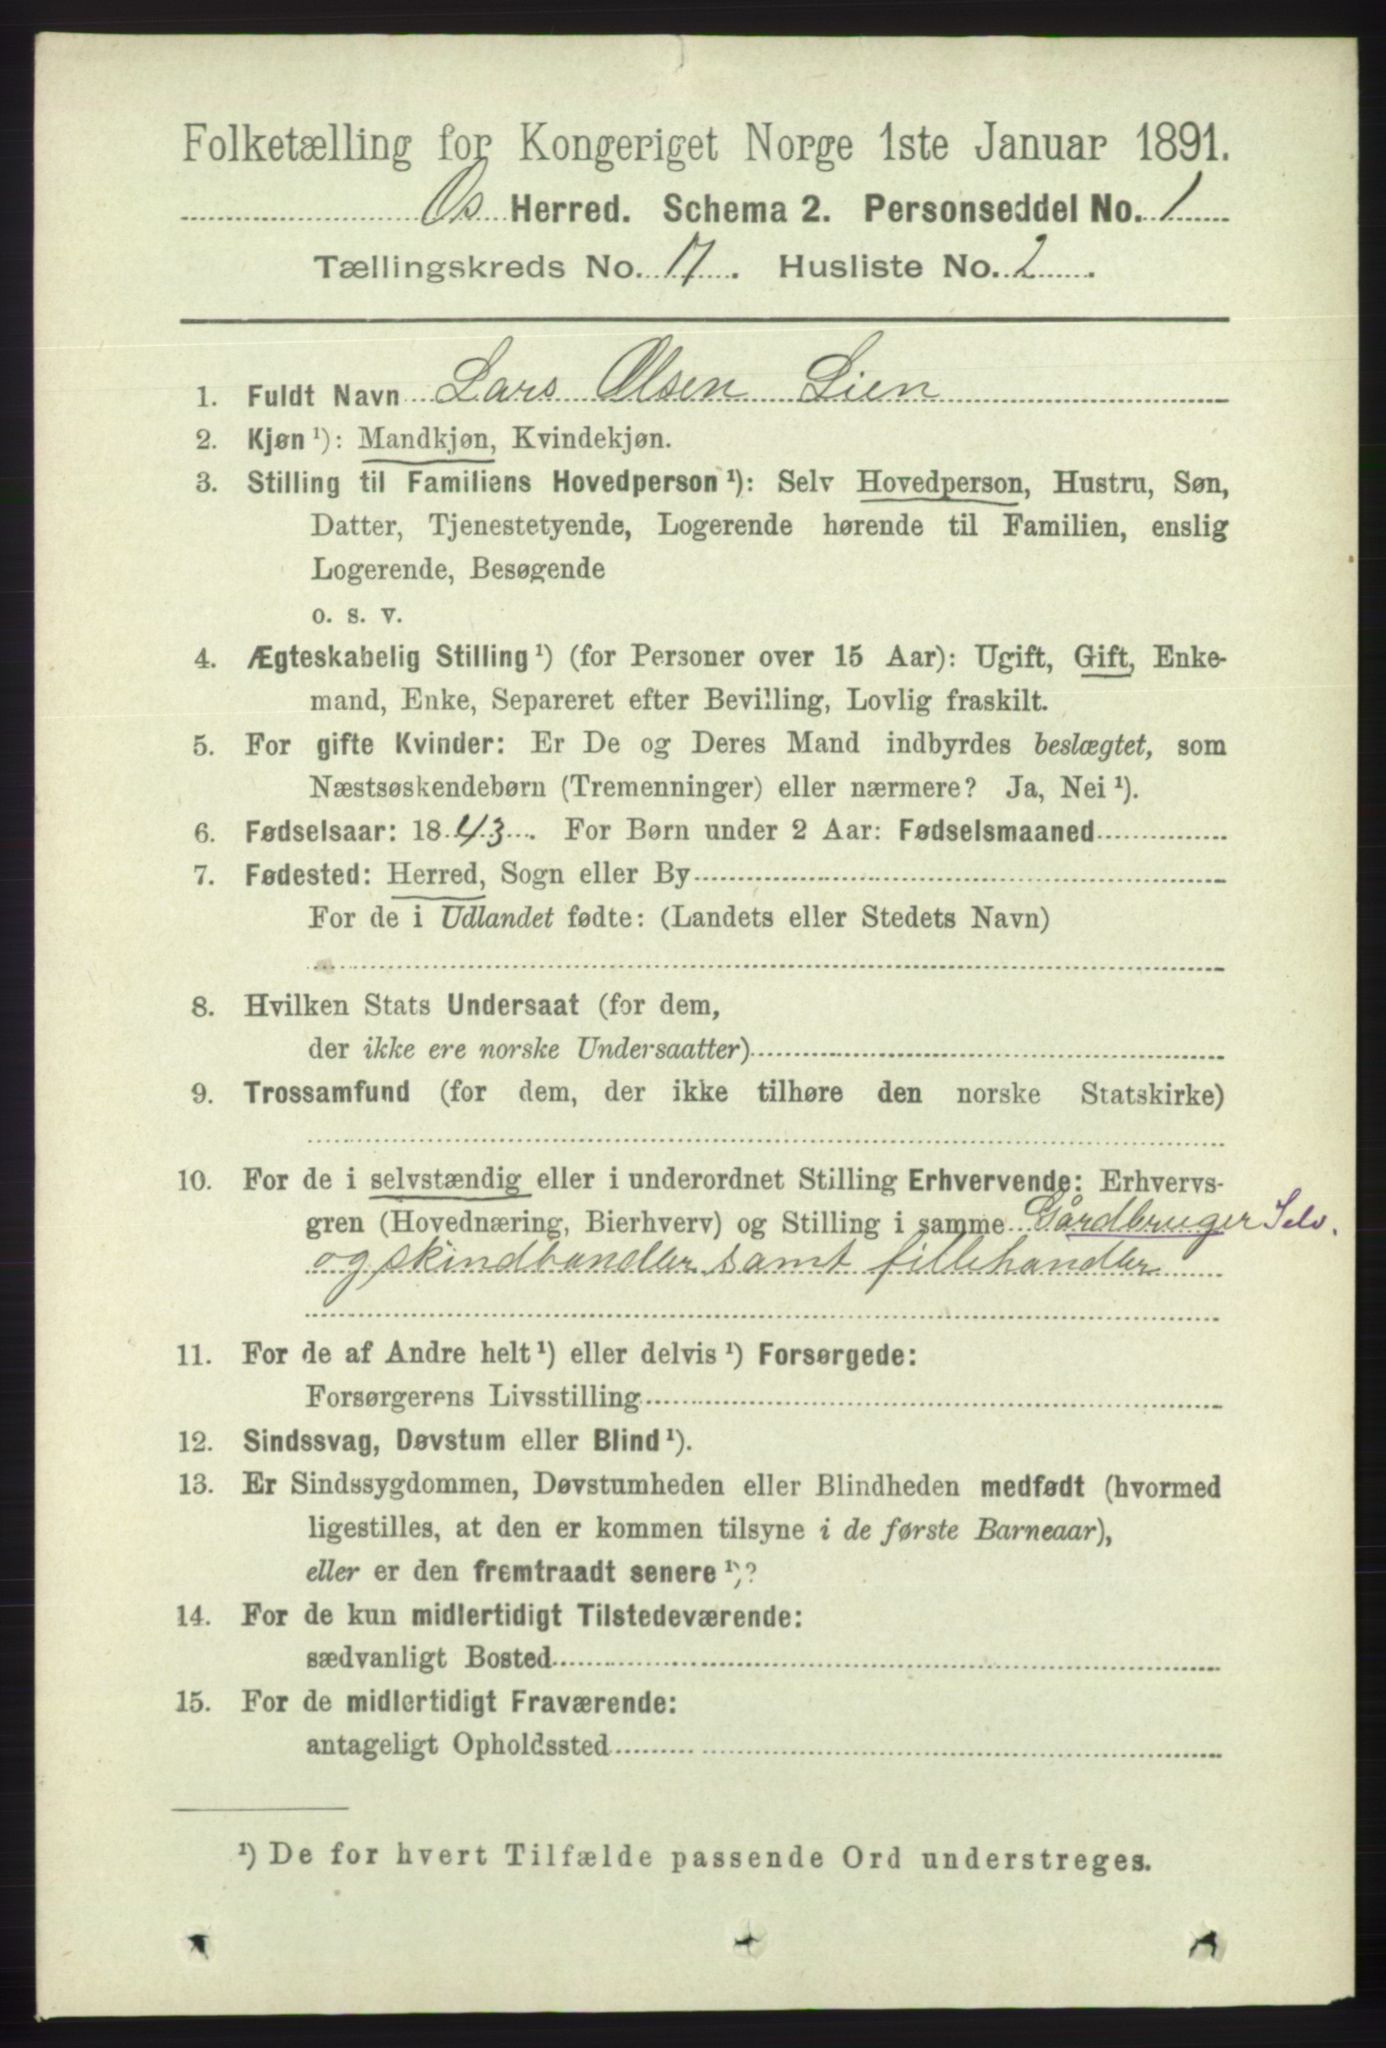 Folketælling for Kongeriget Norge 1ste Januar 1891.
Os Herred. Schema 2. Personseddel No. 1
Tællingskreds No. 17. Husliste No. 2
1. Fuldt Navn Lars Olsen Lien
2. Kjøn ¹): Mandkjøn, Kvindekjøn.
3. Stilling til Familiens Hovedperson ¹): Selv Hovedperson, Hustru, Søn,
Datter, Tjenestetyende, Logerende hørende til Familien, enslig
Logerende, Besøgende
o. s. v.
4. Ægteskabelig Stilling ¹) (for Personer over 15 Aar): Ugift, Gift, Enke-
mand, Enke, Separeret efter Bevilling, Lovlig fraskilt.
5. For gifte Kvinder: Er De og Deres Mand indbyrdes beslægtet, som
Næstsøskendebørn (Tremenninger) eller nærmere? Ja, Nei ¹).
6. Fødselsaar: 1843. For Børn under 2 Aar: Fødselsmaaned
7. Fødested: Herred, Sogn eller By
For de i Udlandet fødte: (Landets eller Stedets Navn)
8. Hvilken Stats Undersaat (for dem,
der ikke ere norske Undersaatter)
9. Trossamfund (for dem, der ikke tilhøre den norske Statskirke)
10. For de i selvstændig eller i underordnet Stilling Erhvervende: Erhvervs-
gren (Hovednæring, Bierhverv) og Stilling i samme Gårdbruger Selv.
og skindhandler samt fillehandler
11. For de af Andre helt ¹) eller delvis ¹) Forsørgede:
Forsørgerens Livsstilling
12. Sindssvag, Døvstum eller Blind ¹).
13. Er Sindssygdommen, Døvstumheden eller Blindheden medfødt (hvormed
ligestilles, at den er kommen tilsyne i de første Barneaar),
eller er den fremtraadt senere ¹)?
14. For de kun midlertidigt Tilstedeværende:
sædvanligt Bosted
15. For de midlertidigt Fraværende:
antageligt Opholdssted
¹) De for hvert Tilfælde passende Ord understreges.